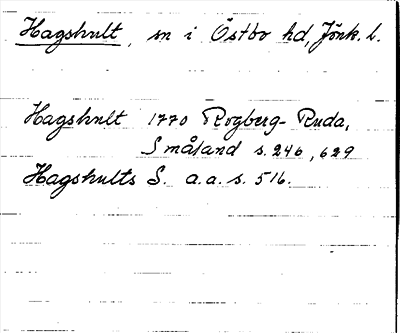 Hagshult, sn i Östbo hd, Jönk. l.
Hagshult 1770 Rogberg-Ruda,
Småland s. 246, 629
Hagshults S. a.a. s. 516.